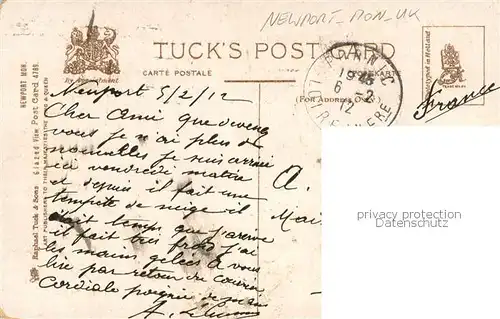 NEWPORT - MON - UK
TUCK'S POST CARD
CARTE POSTALE
POSTKARTE
By Appointment
(FOR ADDRESS ONLY.)
NEWPORT MON.
Glazed View Post Card 4789.
Raphael Tuck & Sons
ART PUBLISHERS TO THEIR MAJESTIES THE KING & QUEEN
in Holland
TRADE MARK
19 15
6 - 2
12
Newport 5/2/12
Cher Ami que devenez
vous je n'ai plus de
nouvelles je suis arrivé
ici vendredi matin
et depuis il fait une
tempête de neige il
était temps que j'arrive
il fait très froid j'ai
les mains gelées à vous
lire par retour du courrier
Cordiale poignée de main
A.
France
A.
privacy protection
Datenschutz